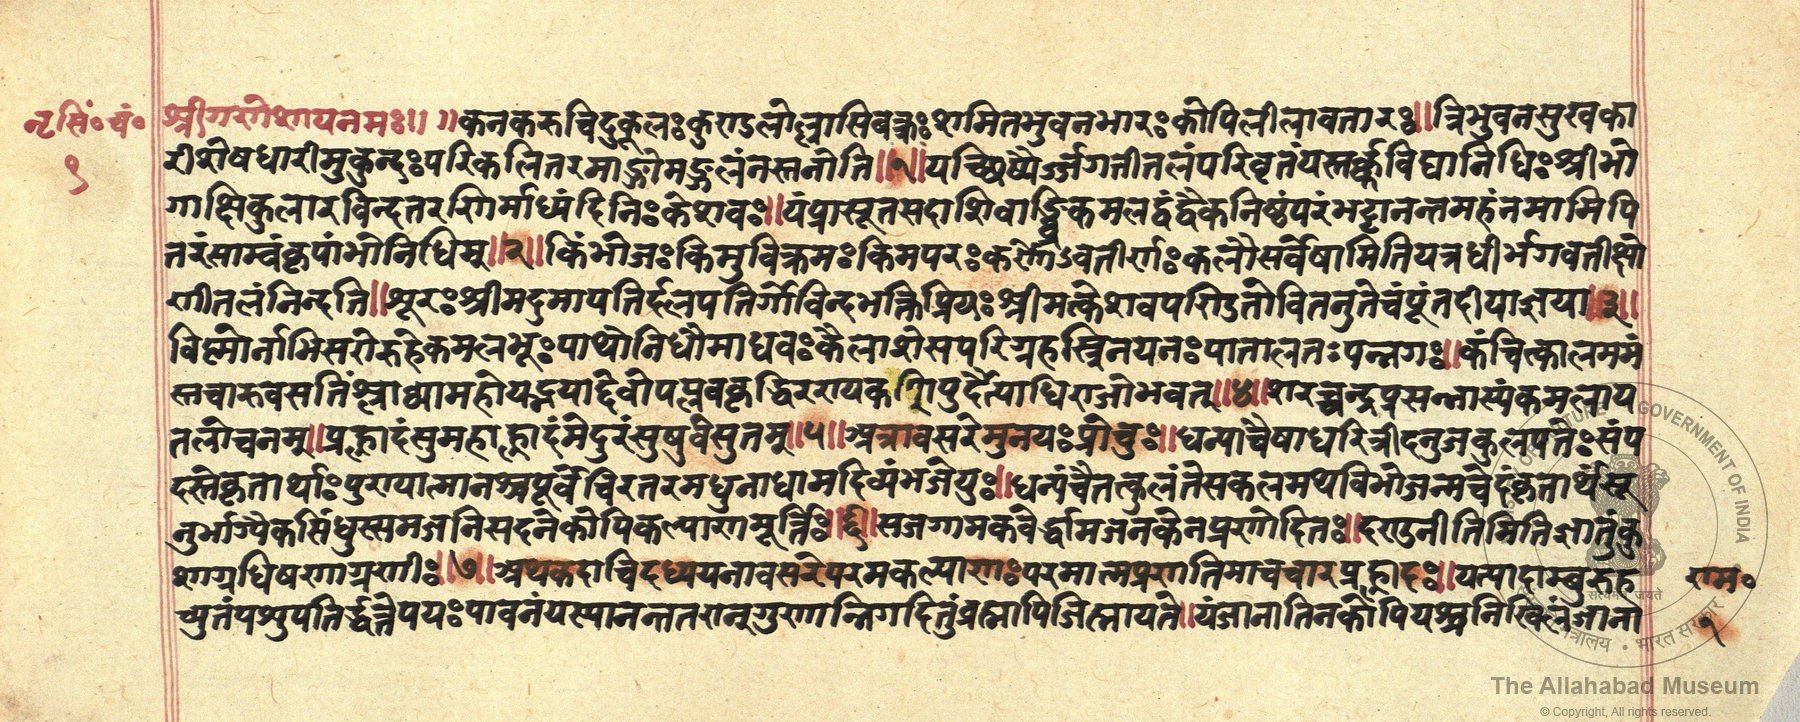 नृसिं॰ चं॰
१
श्रीगणेशायनमः॥ ॥कनकरुचिदुकूलःकुण्डलोल्लासिवक्त्रःशमितभुवनभारःकोपिलीलावतारः॥त्रिभुवनसुखका
रीशेषधारीमुकुन्दःपरिकलितरमाङ्गोमङ्गलंनस्तनोति॥१॥यच्छिष्यैर्ज्जगतीतलंपरिवृतंयस्तर्क्कविद्यानिधिःश्रीभो
गाक्षिकुलारविन्दतरणिर्माध्यंदिनिःकेशवः॥यंप्रासूतसदाशिवाङ्घ्रिकमलद्वंद्वैकनिष्ठंपरंभट्टानन्तमहंनमामिपि
तरंसाम्वंकृपांभोनिधिम्॥२॥किंभोजःकिमुविक्रमःकिमपरःकर्णोऽवतीर्णःकलौसर्वेषामितियत्रधीर्भगवतीक्षो
णीतलंनिन्दति॥शूरःश्रीमदुमापतिर्दलपतिर्गोविन्दभक्तिप्रियःश्रीमत्केशवपण्डितोवितनुतेचंपूंतदीयाज्ञया॥३॥
विष्णोर्नाभिसरोरुहेकमलभूःपाथोनिधौमाधवःकैलाशेसपरिग्रहस्त्रिनयनःपातालतःपन्नगः॥कंचित्कालममं
स्तचारुवसतिंश्लाध्यामहोयद्भयाद्देवोपप्लवकृद्धिरण्यकशिपुर्दैत्याधिराजोभवत्॥४॥शरच्चन्द्रप्रसन्नास्यंकमलाय
तलोचनम्॥प्रह्लादंसुमहाह्लादंमेदुरंसुषुवेसुतम्॥५॥अत्रावसरेमुनयःप्रोचुः॥धन्याचैषाधरित्रीदनुजकुलपतेःसंप
दस्तेकृतार्थाःपुण्यात्मानअपूर्वेचिरतरमधुनाधामदिव्यंभजेयुः॥धन्यंचैतत्कुलंतेसकलमथविभोजन्मचेदंकृतार्थंसू
नुर्भाग्यैकसिंधुस्समजनिसदनेकोपिकल्याणमूर्त्तिः॥६॥सजगामकवेर्द्धामजनकेनप्रणोदितः॥दण्डनीतिमितिज्ञातुंकु
शाग्रधिषणाग्रणीः॥७॥अथकदाचिदध्ययनावसरेपरमकल्याणःपरमात्मप्रणतिमाचचारप्रह्लादः॥यत्पादाम्बुरुह
च्युतंपशुपतिर्द्धत्तेपयःपावनंयस्यानन्ततरान्गुणान्निगदितुंब्रह्मापिजिह्मायते॥यंजानातिनकोपियश्चनिखिलंजाना
राम॰
१
The Allahabad Museum
© Copyright, All rights reserved.
GOVERNMENT OF INDIA
सत्यमेव जयते
भारत सरकार